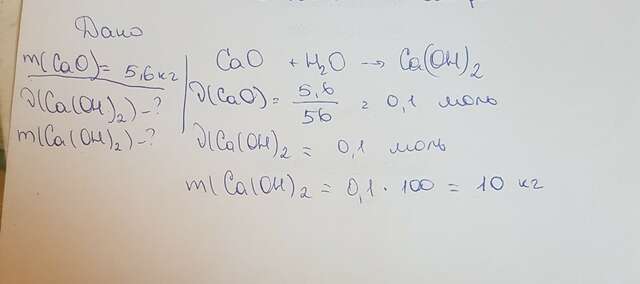 Дано
m(CaO) = 5,6 кг
ν(Ca(OH)₂) - ?
m(Ca(OH)₂) - ?
CaO + H₂O → Ca(OH)₂
ν(CaO) = 5,6/56 = 0,1 моль
ν(Ca(OH)₂ = 0,1 моль
m(Ca(OH)₂ = 0,1 · 100 = 10 кг